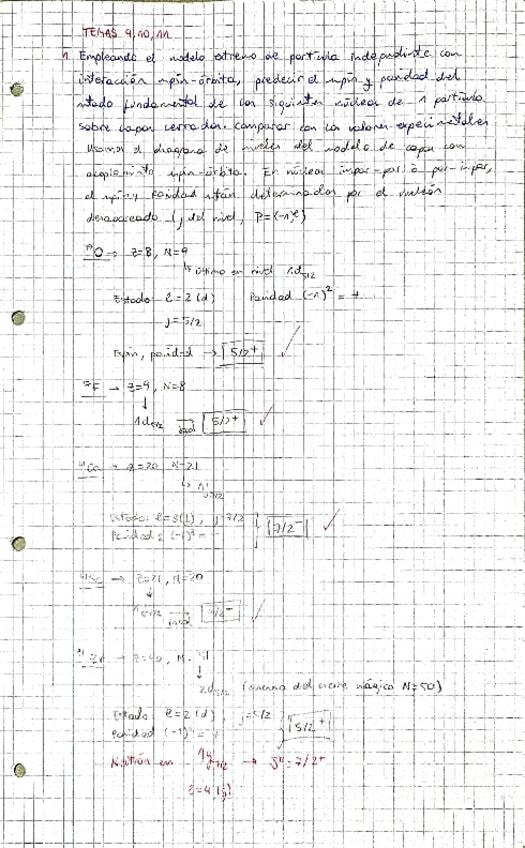 TEMAS 9, 10, 11
1. Empleando el modelo extremo de partícula independiente con
interacción spin-órbita, predecir el spin y paridad del
estado fundamental de los siguientes núcleos de 1 partícula
sobre capas cerradas. Comparar con los valores experimentales
Usamos el diagrama de niveles del modelo de capas con
acoplamiento spin-órbita. En núcleos impar-par o par-impar,
el spin y paridad están determinados por el nucleón
desapareado (j del nivel, P=(-1)^ℓ)
¹⁷O → Z=8, N=9
↳ último en nivel 1d5/2
Estado ℓ=2 (d) Paridad (-1)² = +
j=5/2
Spin, paridad → 5/2⁺
¹⁷F → Z=9, N=8
↓
1d5/2 → 5/2⁺
⁴¹Ca → Z=20 N=21
↳ 1f7/2
Estado: ℓ=3(f), j=7/2
Paridad: (-1)³ = - 7/2⁻
⁴¹Sc → Z=21, N=20
↓
→ 7/2⁻
⁹¹Zr → Z=40, N=51
↓
2d5/2 (encima del cierre mágico N=50)
Estado ℓ=2 (d), j=5/2
Paridad (-1)² = + 5/2⁺
Neutrón en 1g7/2 → J^π = 7/2⁺
ℓ=4 (g)